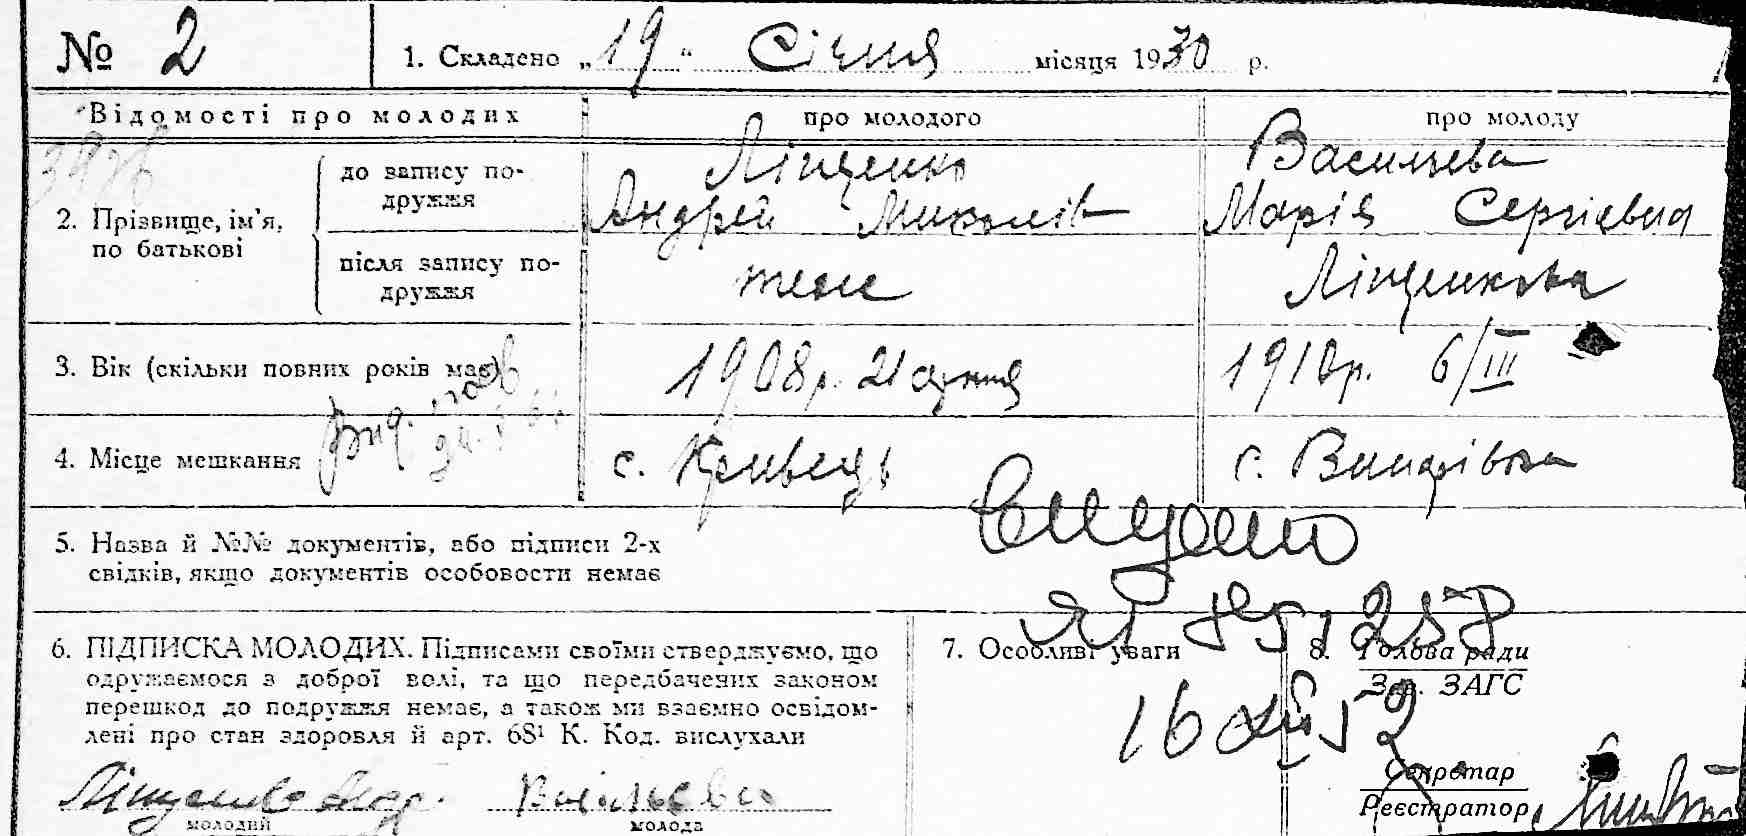 № 2
1. Складено „19“ Січня місяця 1930 р.
Відомості про молодих
про молодого
про молоду
2. Прізвище, ім'я, по батькові
до запису подружжя
Ліщенко
Андрей Миколів
Васильєва
Марія Сергієвна
після запису подружжя
теж
Ліщенкова
3. Вік (скільки повних років має)
1908 р. 21
1910 р. 6/III
4. Місце мешкання
с. Кривець
с. Винарівка
5. Назва й №№ документів, або підписи 2-х
свідків, якщо документів особовости немає
Видано
6. ПІДПИСКА МОЛОДИХ. Підписами своїми стверджуємо, що
одружаємося з доброї волі, та що передбачених законом
перешкод до подружжя немає, а також ми взаємно освідом-
лені про стан здоровля й арт. 68¹ К. Код. вислухали
Ліщенко Андр.
Васильєва
молодий
молода
7. Особливі уваги
8. Голова ради
Зав. ЗАГС
Секретар
Реєстратор